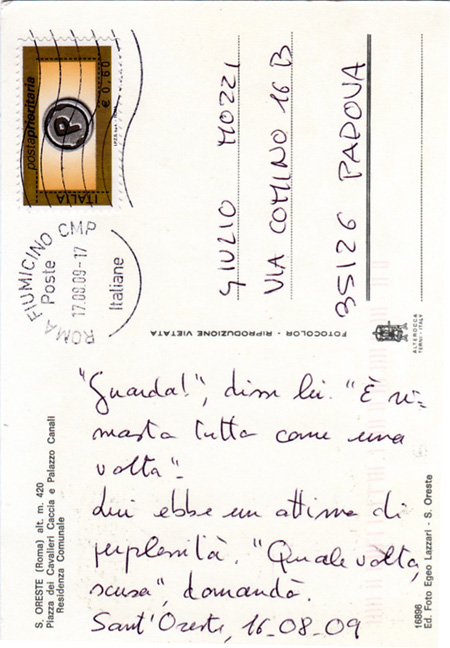 postaprioritaria
€ 0,60
ITALIA
P
ROMA FIUMICINO CMP
Poste
17.08.09-17
Italiane
GIULIO MOZZI
VIA COMINO 16 B
35126 PADOVA
FOTOCOLOR - RIPRODUZIONE VIETATA
ALTEROCCA
TERNI - ITALY
"Guarda!", disse lei. "È ri-
masto tutto come una
volta".
Lui ebbe un attimo di
perplessità. "Quale volta,
scusa", domandò.
Sant'Oreste, 16-08-09
S. ORESTE (Roma) alt. m. 420
Piazza dei Cavalieri Caccia e Palazzo Canali
Residenza Comunale
16896
Ed. Foto Egeo Lazzari - S. Oreste